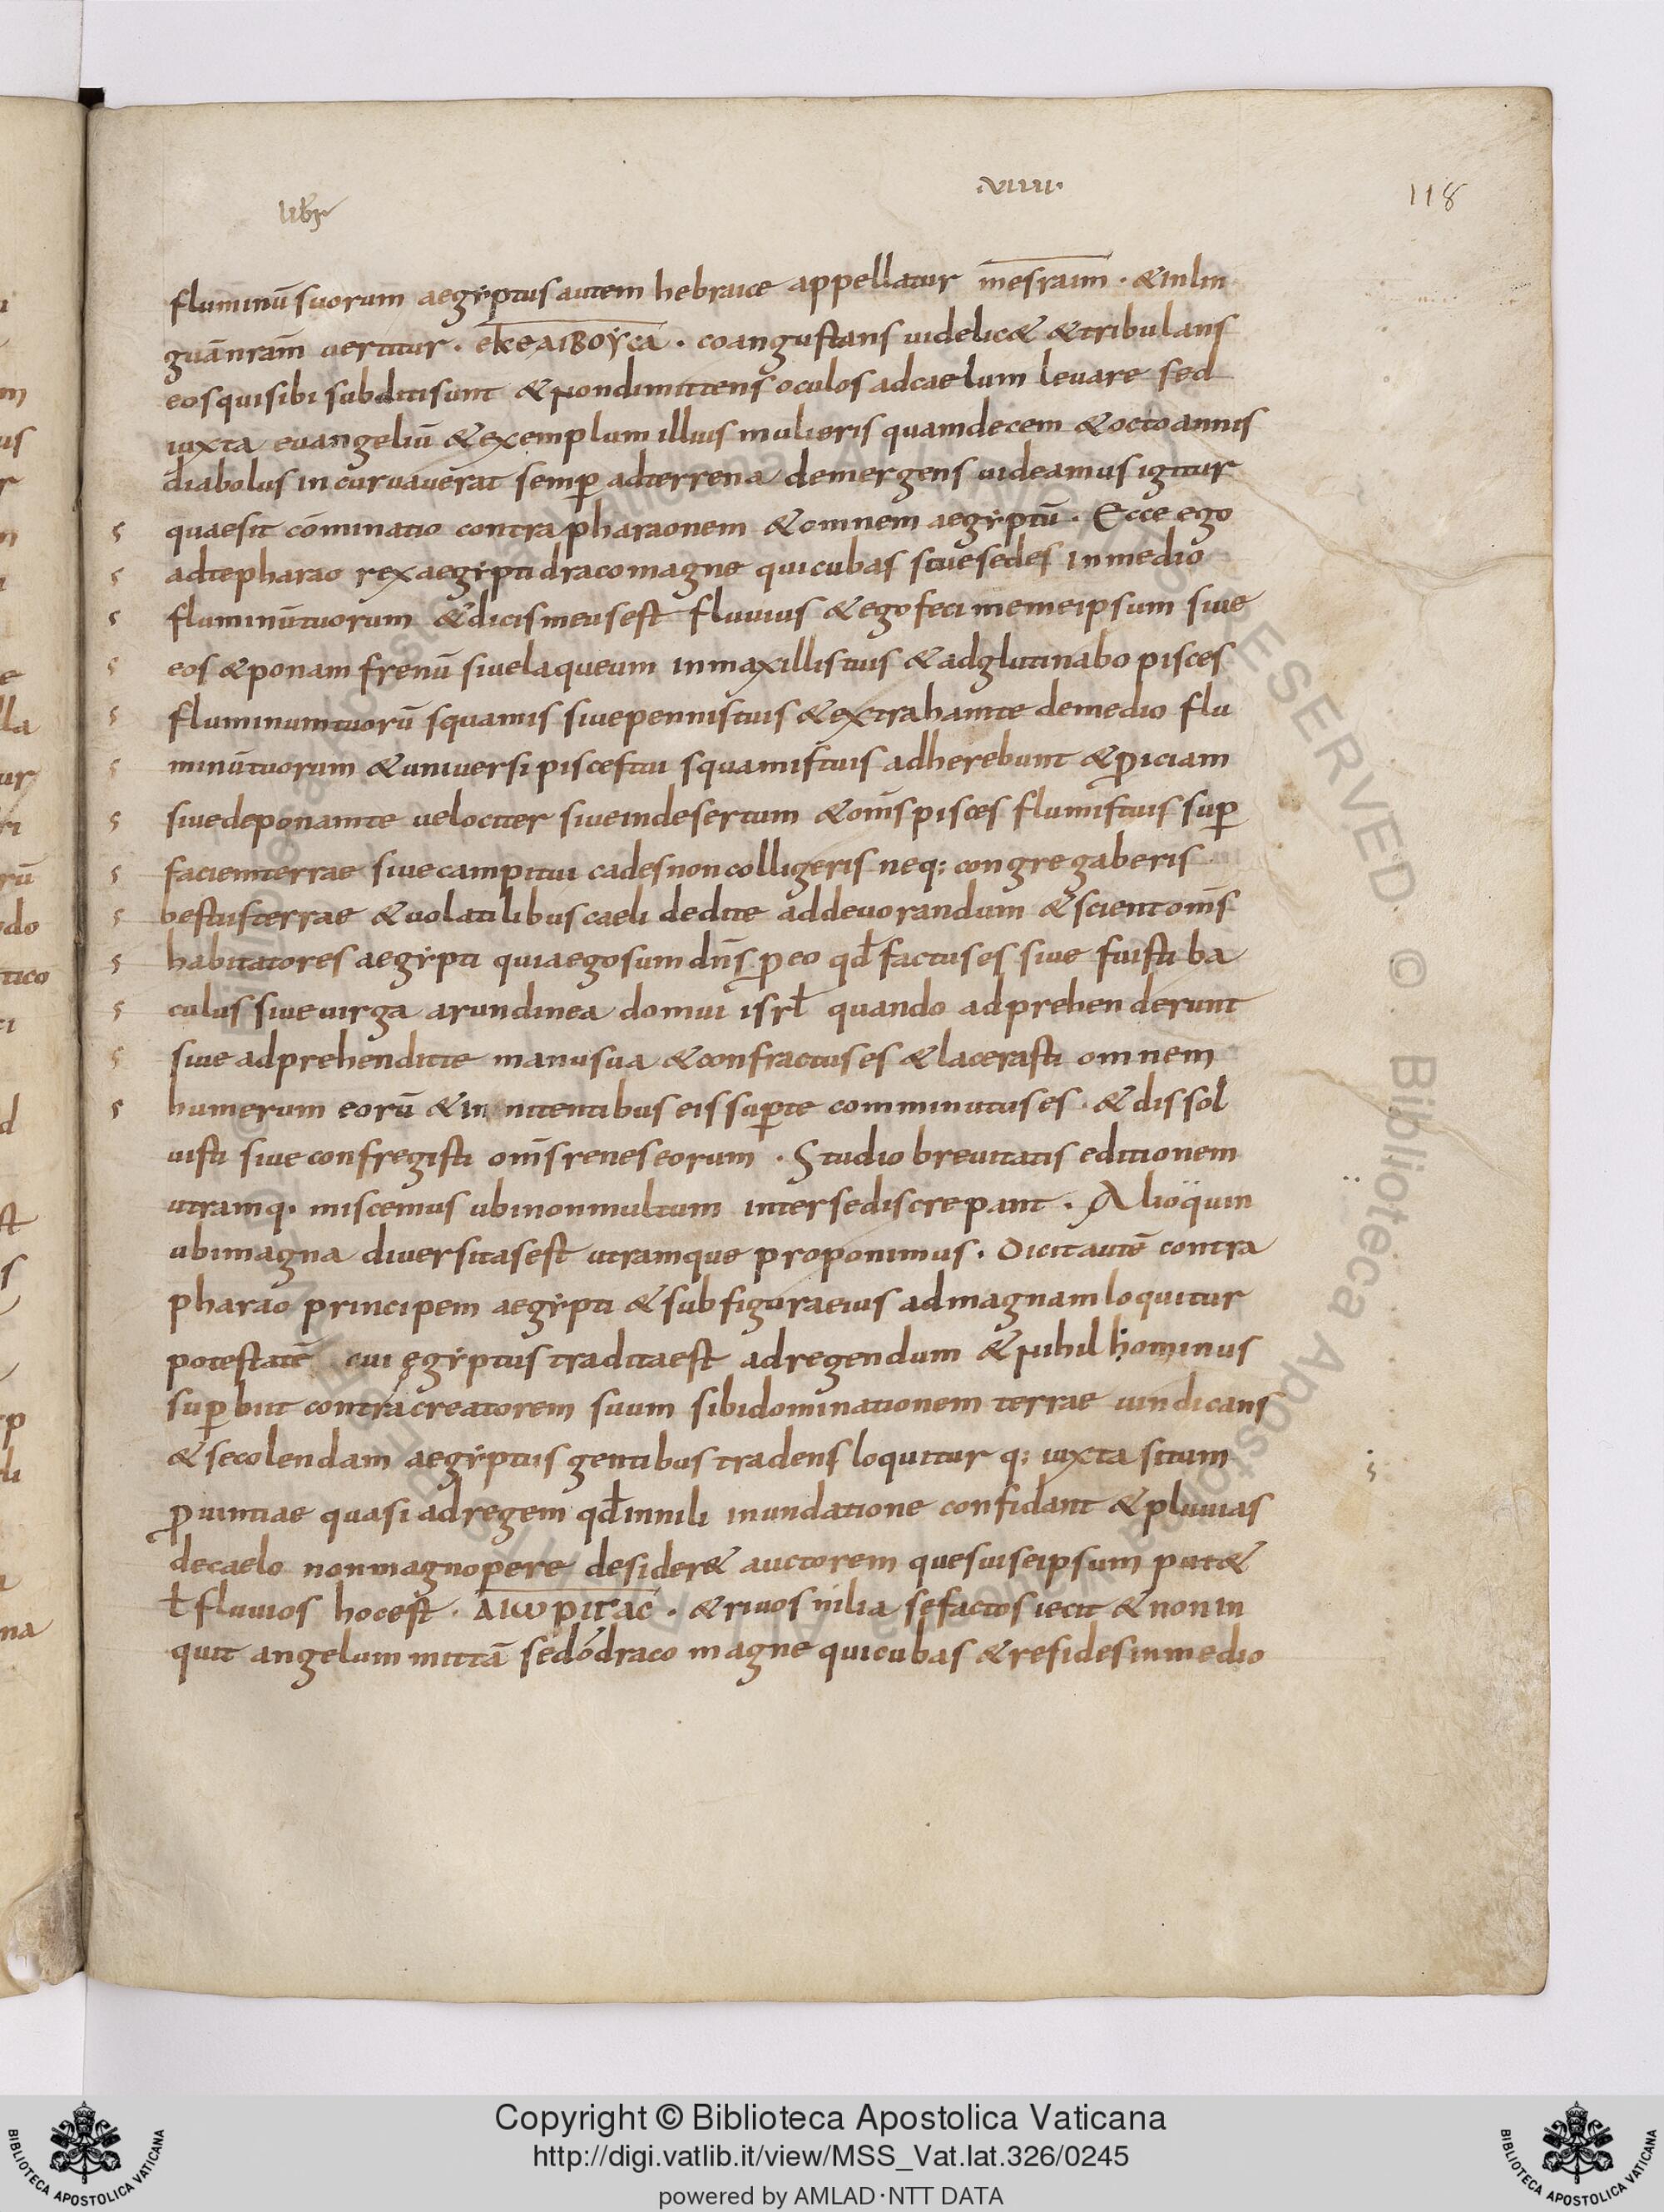 libr
.VIIII.
118
fluminū suorum aegyptus autem hebraice appellatur mesraim · & inlin
guā nrām vertitur · eKεΛIBOYCA · coangustans uidelic& & tribulans
eos qui sibi subditi sunt & non dimittens oculos ad caelum levare sed
iuxta euangeliū & exemplum illius mulieris quam decem & octo annis
diabolus incurvaverat semp̄ ad terrena demergens uideamus igitur
quae sit cōminatio contra pharaonem & omnem aegyptū · Ecce ego
ad te pharao rex aegypti draco magne qui cubas sive sedes in medio
fluminū tuorum & dicis meus est fluvius & ego feci memeipsum sive
eos & ponam frenū sive laqueum in maxillis tuis & adglutinabo pisces
fluminum tuorū squamis sive pennis tuis & extraham te de medio flu
minū tuorum & universi pisces tui squamis tuis adherebunt & p̄iciam
sive deponam te velociter sive in desertum & om̄s pisces flumis tuis sup̄
faciem terrae sive campi tui cades non colligeris neq; congregaberis
bestiis terrae & volatilibus caeli dedi te ad devorandum & scient om̄s
habitatores aegypti quia ego sum dn̄s p̄ eo qd̄ factus es sive fuisti ba
culus sive virga arundinea domui isrl̄ quando adprehenderunt
sive adprehendit te manu sua & confractus es & lacerasti omnem
humerum eorū & in nitentibus eis sup̄ te comminutus es · & dissol
visti sive confregisti om̄s renes eorum · Studio brevitatis editionem
utramq· miscemus ubi non multum inter se discrepant · Alioquin
ubi magna diversitas est utramque proponimus · Dicit autē contra
pharao principem aegypti & sub figura eius ad magnam loquitur
potestatē cui ęgyptus tradita est ad regendum & nihil hominus
sup̄biit contra creatorem suum sibi dominationem terrae vindicans
& se colendam aegyptiis gentibus tradens loquitur q; iuxta situm
p̄vintiae quasi ad regem qd̄ in nili inundatione confidant & pluvias
de caelo non magnopere desider& auctorem que sui seipsum put&
ł fluvios hoc est · ΔIωPIΓAC · & rivos nili a se factos iecit & non in
quit angelum mittā sed ó draco magne qui cubas & resides in medio
Copyright © Biblioteca Apostolica Vaticana
http://digi.vatlib.it/view/MSS_Vat.lat.326/0245
powered by AMLAD·NTT DATA